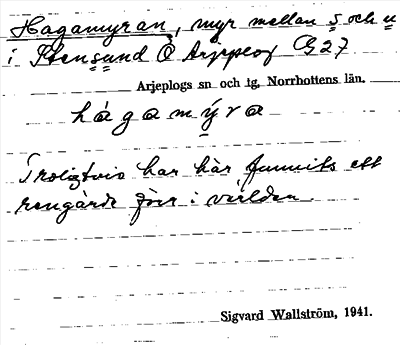 Hagamyran, myr mellan S och u
i Stensund Ö Arjeplog G27
Arjeplogs sn och tg, Norrbottens län.
hágamýra
Troligtvis har här funnits ett
rengärde förr i världen.
Sigvard Wallström, 1941.